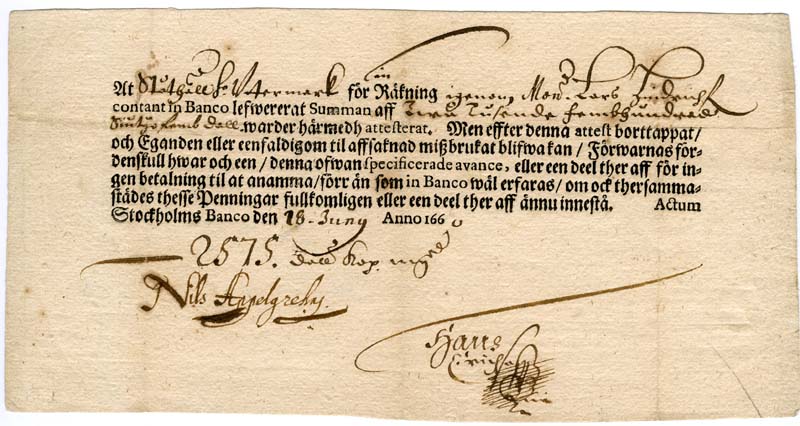 At för Räkning igenom Mon. Lars
contant in Banco lefwererat Summan aff Twå Tusende femhundrade
Siutijo Femb Dall. warder härmedh attesterat. Men effter denna attest borttappat/
och Eganden eller eenfaldigom til affsaknad mißbrukat blifwa kan / Förwarnas för-
denskull hwar och een / denna ofwan specificerade avance, eller een deel ther aff för in-
gen betalning til at anamma / förr än som in Banco wäl erfaras / om ock thersamma-
städes thesse Penningar fullkomligen eller een deel ther aff ännu innestå. Actum
Stockholms Banco den 18. Juny Anno 166
2575. dall Kop. mynt
Nils
Hans